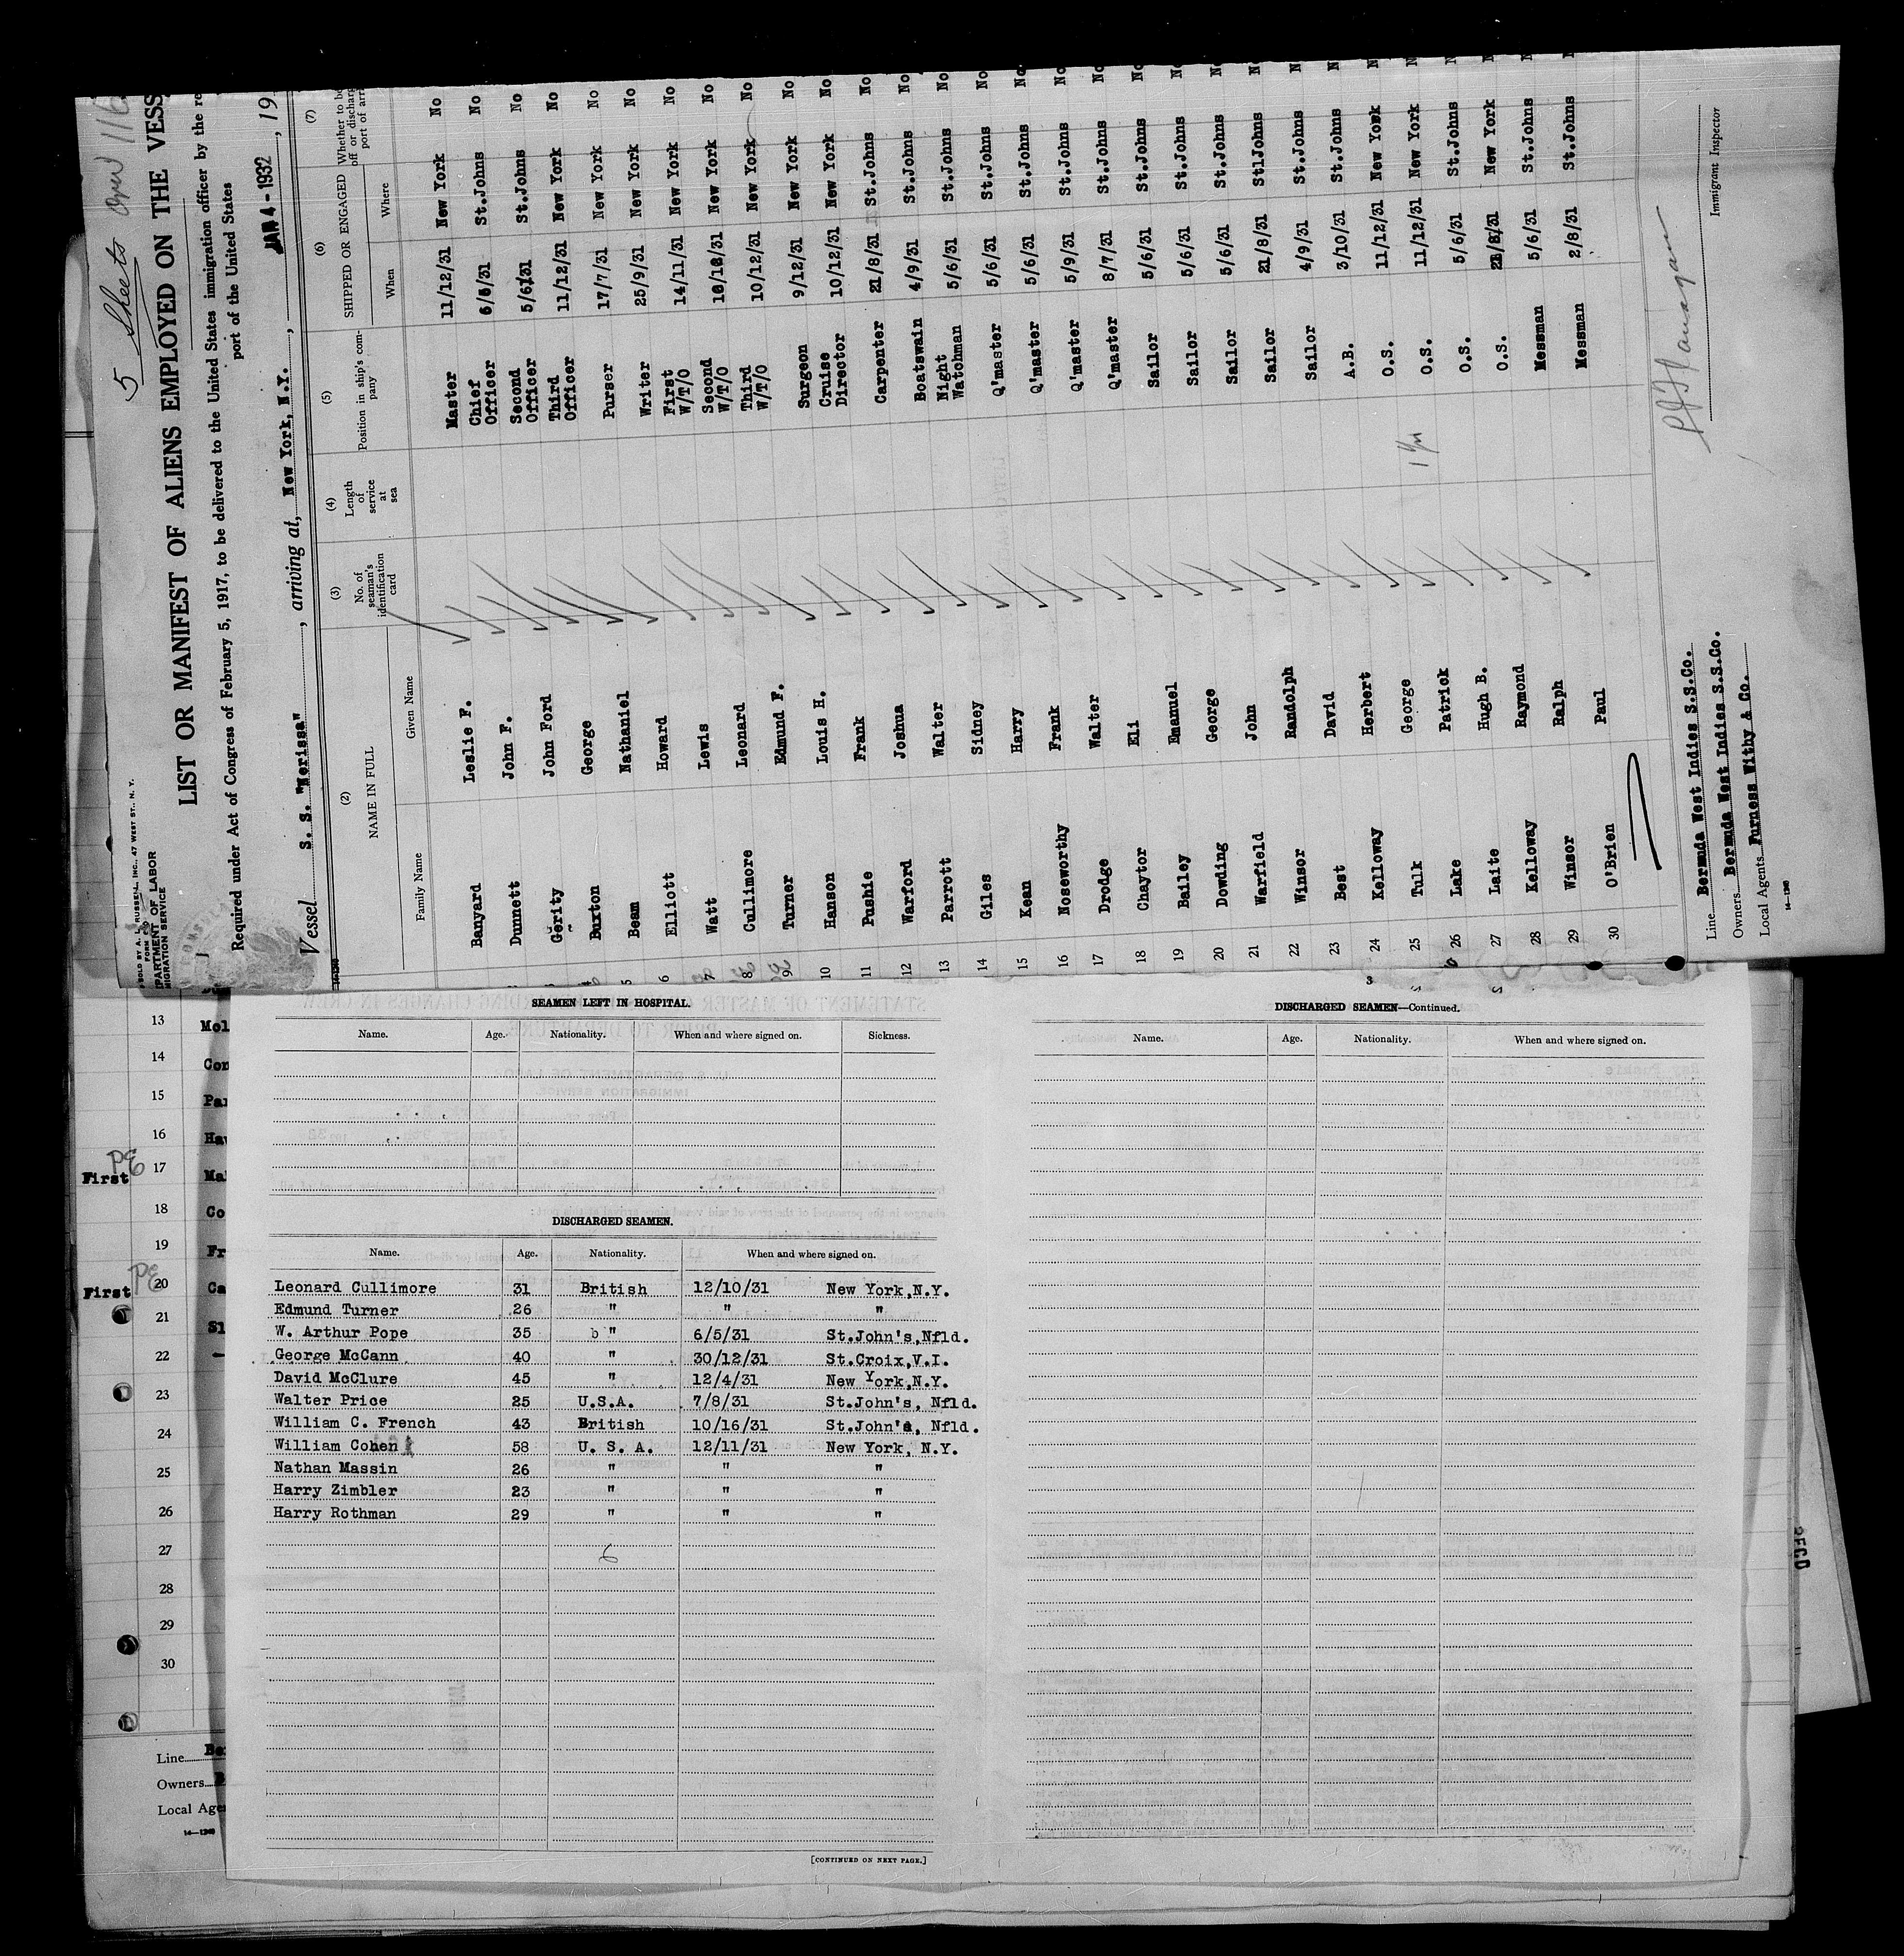 5 Sheets
SOLD BY A. J. RUSSELL, INC., 47 WEST ST., N. Y.
LIST OR MANIFEST OF ALIENS EMPLOYED ON THE VESS
Required under Act of Congress of February 5, 1917, to be delivered to the United States immigration officer by the re
port of the United States
Vessel S. S. "Nerissa", arriving at, New York, N.Y., JAN 4 - 1932, 19
(2) (3) (4) (5) (6) (7)
NAME IN FULL No. of seaman's identification card Length of service at sea Position in ship's company SHIPPED OR ENGAGED Whether to be off or discharg port of arr
Family Name Given Name When Where
Banyard Leslie F. Master 11/12/31 New York No
Dunnett John F. Chief Officer St.Johns No
Gerity John Ford Second Officer 5/6/31 St.Johns No
Buxton George Third Officer 11/12/31 New York No
5 Beam Nathaniel Purser 17/7/31 New York No
6 Elliott Howard Writer 25/9/31 New York No
7 Watt Lewis First W/T/O 14/11/31 New York No
8 Cullimore Leonard Second W/T/O New York No
9 Turner Edmund F. Third W/T/O 10/12/31 New York No
10 Hanson Louis H. Surgeon 9/12/31 New York No
11 Pushie Frank Cruise Director 10/12/31 New York No
12 Warford Joshua Carpenter 21/8/31 St.Johns No
13 Parrott Walter Boatswain 4/9/31 St.Johns No
14 Giles Sidney Night Watchman 5/6/31 St.Johns No
15 Kean Harry Q'master 5/6/31 St.Johns No
16 Noseworthy Frank Q'master 5/6/31 St.Johns No
17 Drodge Walter Q'master 5/9/31 St.Johns No
18 Chaytor Eli Q'master 8/7/31 St.Johns No
19 Bailey Emanuel Sailor 5/6/31 St.Johns No
20 Dowding George Sailor 5/6/31 St.Johns No
21 Warfield John Sailor 5/6/31 St.Johns No
22 Winsor Randolph Sailor 21/8/31 StlJohns No
23 Best David Sailor 4/9/31 St.Johns No
24 Kelloway Herbert A.B. 3/10/31 St.Johns No
25 Tulk George O.S. 11/12/31 New York No
26 Lake Patrick O.S. 11/12/31 New York No
27 Laite Hugh B. O.S. 5/6/31 St.Johns No
28 Kelloway Raymond O.S. New York No
29 Winsor Ralph Messman 5/6/31 St.Johns No
30 O'Brien Paul Messman 2/8/31 St.Johns No
Line Bermuda West Indies S.S.Co.
Owners Bermuda West Indies S.S.Co.
Local Agents Furness Withy & Co.
14—1240
Immigrant Inspector
SEAMEN LEFT IN HOSPITAL.
Name. Age. Nationality. When and where signed on. Sickness.
DISCHARGED SEAMEN.
Name. Age. Nationality. When and where signed on.
Leonard Cullimore 31 British 12/10/31 New York,N.Y.
Edmund Turner 26 " " "
W. Arthur Pope 35 " 6/5/31 St.John's,Nfld.
George McCann 40 " 30/12/31 St.Croix,V.I.
David McClure 45 " 12/4/31 New York,N.Y.
Walter Price 25 U.S.A. 7/8/31 St.John's, Nfld.
William C. French 43 British 10/16/31 St.John's, Nfld.
William Cohen 58 U. S. A. 12/11/31 New York, N.Y.
Nathan Massin 26 " " "
Harry Zimbler 23 " " "
Harry Rothman 29 " " "
6
[CONTINUED ON NEXT PAGE.]
DISCHARGED SEAMEN—Continued.
Name. Age. Nationality. When and where signed on.
13 Mol
14 Cor
15 Par
16 Hav
First 17 Ma
18 Co
19 Fr
First 20 Ca
21
22
23
24
25
26
27
28
29
30
Line
Owners
Local Age
14—1240